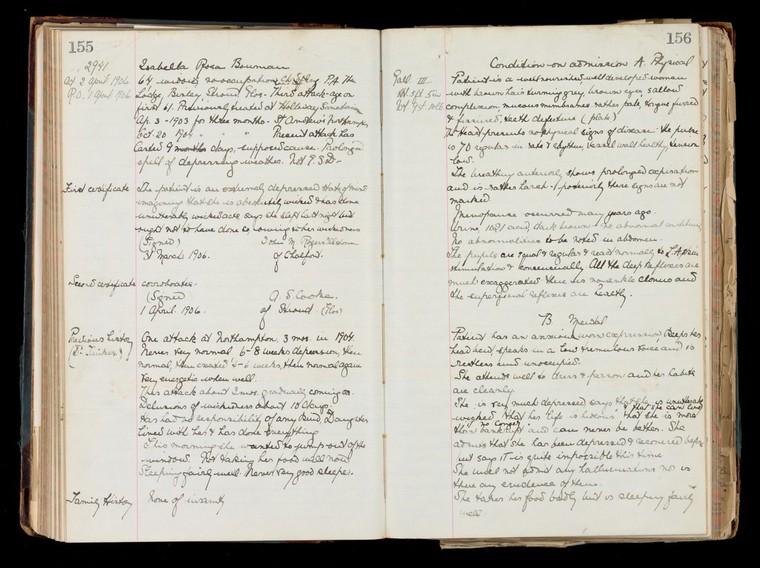 155
2941
Isabella Rosa Bowman
Ad. 2 April 1906
R.O. 1 April 1906
64 widow no occupation Ch. of Eng P.A. The
Lodge, Burley, Stroud, Glos. Third attack - age on
first 61. Previously treated at Holloway Sanatorium
Ap. 3 - 1903 for three months - St Andrew's Northampton
Oct 20 1904 " " " Present attack has
lasted 9 months days, supposed cause. Prolonged
spell of depressing weather. Not P S D -
First certificate
The patient is in an extremely depressed state of mind
imagining that she is absolutely wicked & has done
unutterably wicked acts says she slept last night but
ought not to have done so owing to her wickedness
(Signed) John M. Rogers
31 March 1906. of Chalford.
Second certificate
corroborates -
(Signed A. S. Cooke.
1 April 1906. of Stroud (Glos)
Previous history
One attack at Northampton 3 mos. in 1904.
Never very normal 6-8 weeks depression, then
normal, then excited 4-6 weeks then normal again
Very energetic when well.
This attack about 2 mos. gradually coming on.
Delusions of wickedness about 10 days.
Has had no responsibility of any kind. Daughter
lived with her & has done everything
This morning she wanted to jump out of the
window. Not taking her food well now
Sleeping fairly well. Never very good sleeper.
Family History
None of insanity
156
Condition on admission A. Physical
Patient is a well nourished, well developed woman
with brown hair turning grey, brown eyes, sallow
complexion, mucous membranes rather pale, tongue furred
& fissured, teeth defective (plate)
The heart presents no physical signs of disease. The pulse
is 70 regular in rate & rhythm, vessel wall healthy tension
low.
The breathing anteriorly shows prolonged expiration
and is rather harsh - posteriorly these signs are not
marked
Menopause occurred many years ago.
Urine, 1021 acid, dark brown - no abnormal constituents
No abnormalities to be noted in abdomen.
The pupils are equal & regular & react normally to L. A.
stimulation & consensually All the deep reflexes are
much exaggerated there is no ankle clonus and
the superficial reflexes are healthy.
B. Mental
Patient has an anxious worn expression keeps her
head down, speaks in a low tremulous voice and is
restless and unoccupied.
She attends well to dress & person and her habits
are cleanly
She is very much depressed says that she is unutterably
wicked, that her life is hideous, & that she can live
no longer that she is more
than bankrupt and can never be better. She
admits that she has been depressed & recovered before
but says it is quite impossible this time
She will not admit any hallucinations nor is
there any evidence of them.
She takes her food badly but is sleeping fairly
well